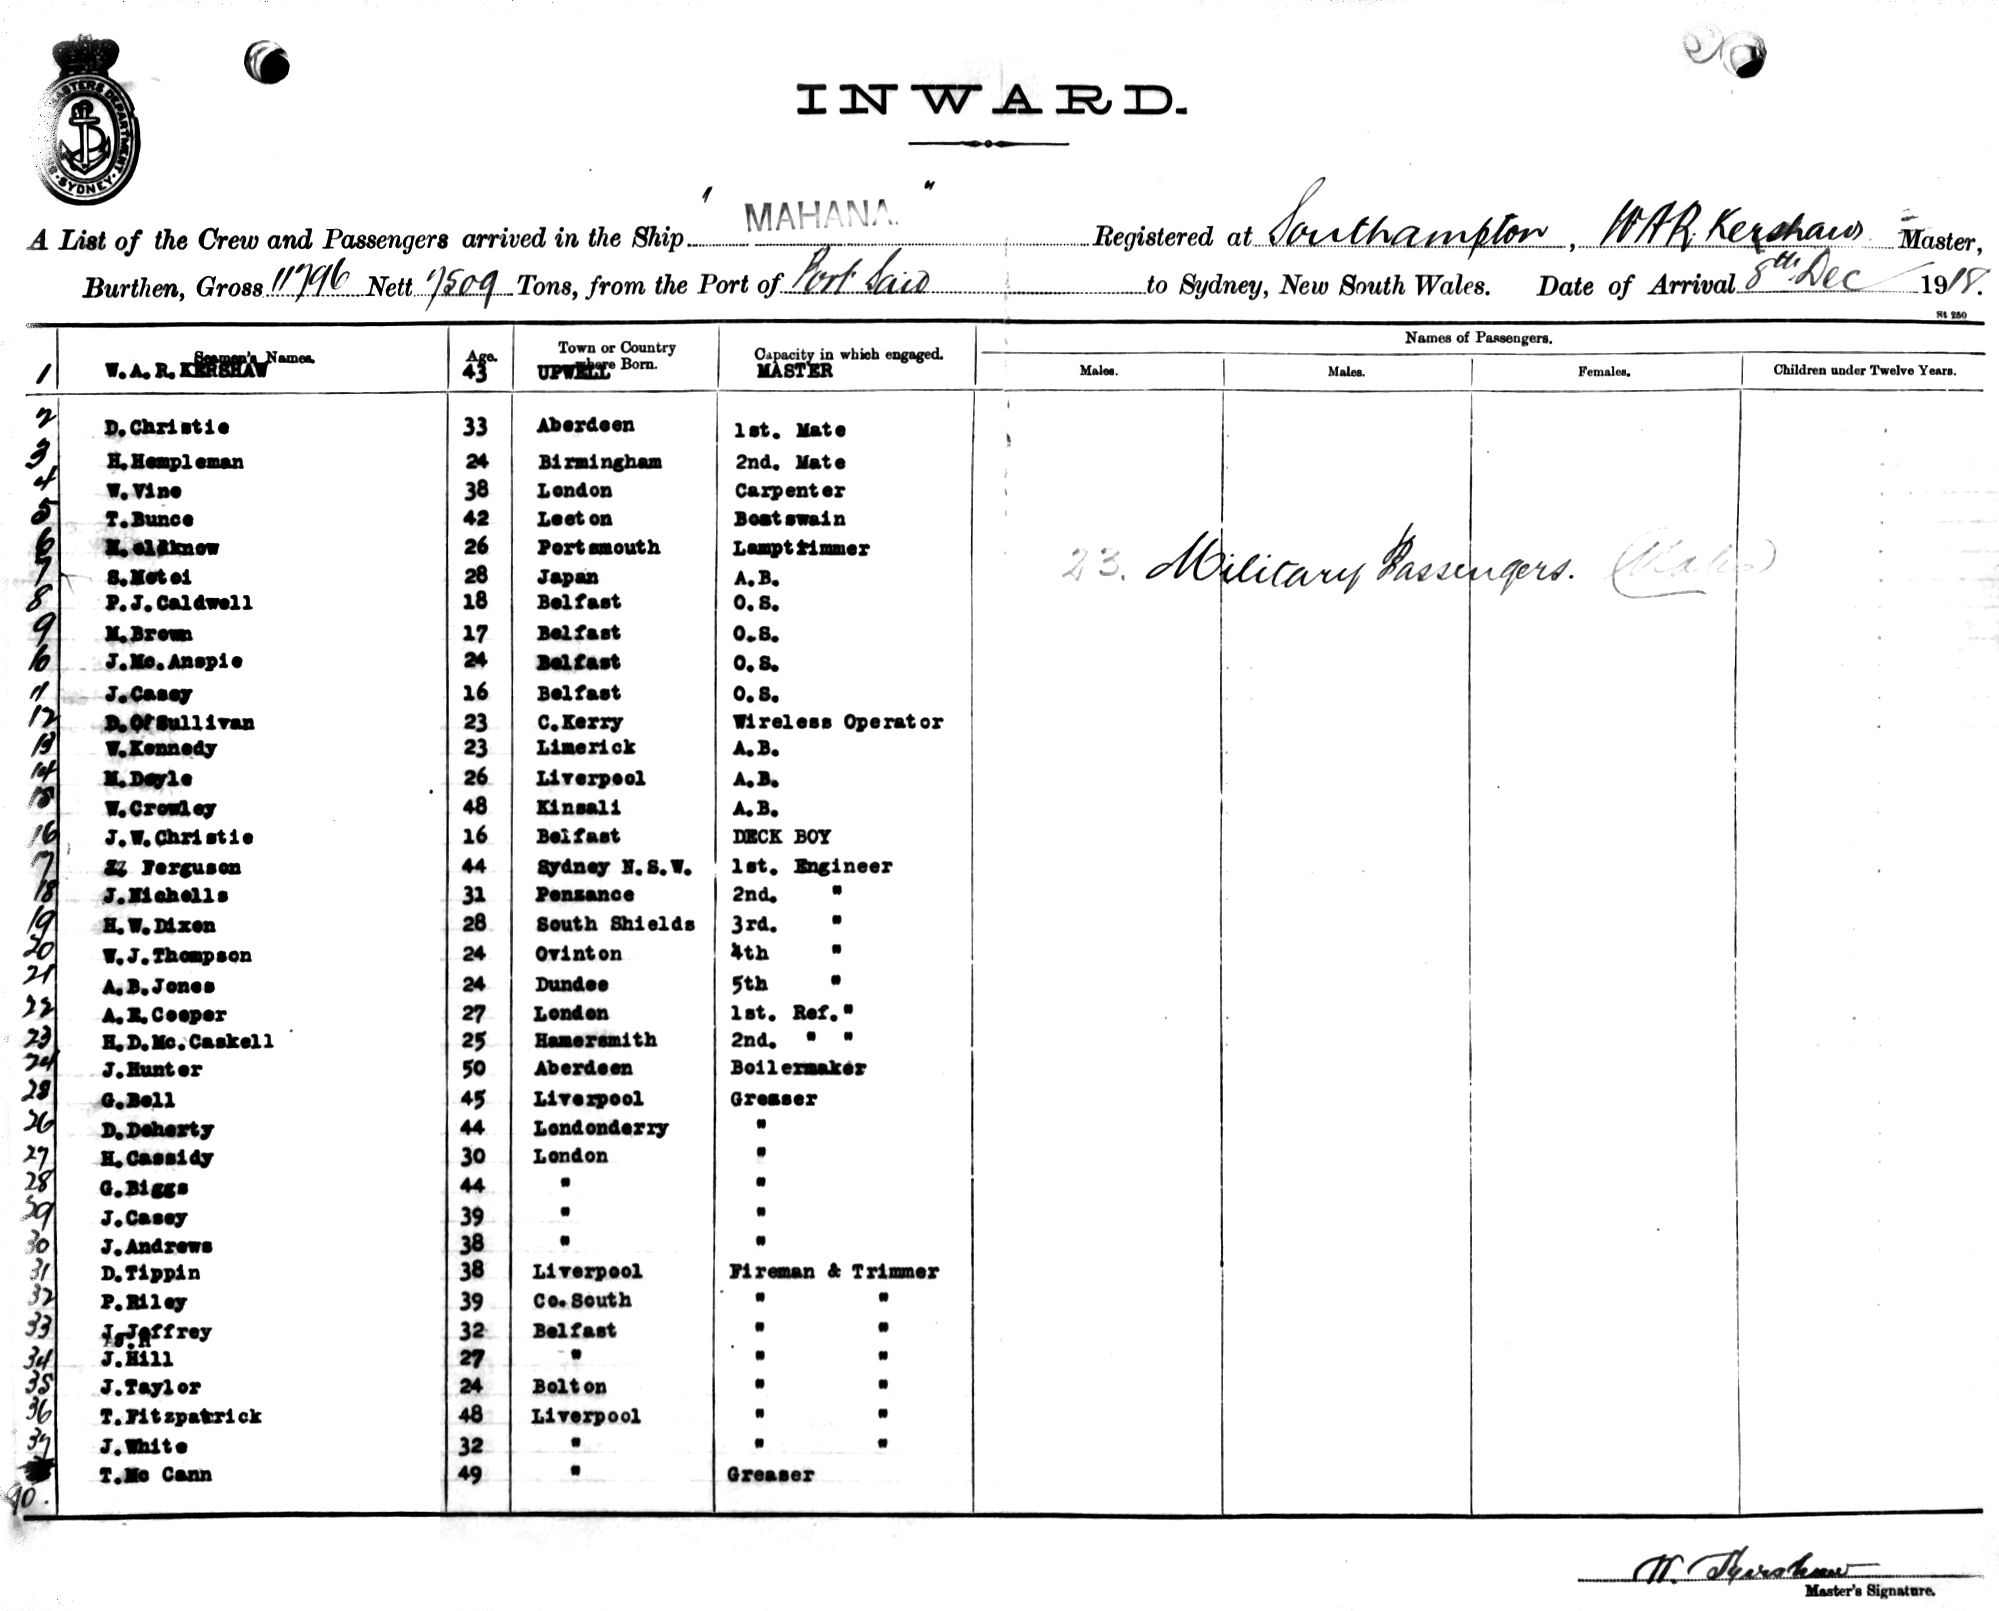 MASTERS DEPARTMENT
SYDNEY
INWARD.
A List of the Crew and Passengers arrived in the Ship " MAHANA. " Registered at Southampton, W A R. Kershaw Master,
Burthen, Gross 11796 Nett 7509 Tons, from the Port of Port Said to Sydney, New South Wales. Date of Arrival 8th Dec 1918.
St 250
Seamen's Names. Age. Town or Country where Born. Capacity in which engaged. Names of Passengers.
Males. Males. Females. Children under Twelve Years.
1 W. A. R. KERSHAW 43 UPWELL MASTER
2 D. Christie 33 Aberdeen 1st. Mate
3 H. Hempleman 24 Birmingham 2nd. Mate
4 W. Vine 38 London Carpenter
5 T. Bunce 42 Leeton Boatswain
6 Oldknow 26 Portsmouth Lamptrimmer
23. Military Passengers. (Males)
7 S. Motoi 28 Japan A.B.
8 P. J. Caldwell 18 Belfast O.S.
9 M. Brown 17 Belfast O.S.
10 J. Mc. Anspie 24 Belfast O.S.
11 J. Casey 16 Belfast O.S.
12 D. O'Sullivan 23 C. Kerry Wireless Operator
13 W. Kennedy 23 Limerick A.B.
14 M. Doyle 26 Liverpool A.B.
15 W. Crowley 48 Kinsali A.B.
16 J. W. Christie 16 Belfast DECK BOY
17 Ferguson 44 Sydney N.S.W. 1st. Engineer
18 J. Nicholls 31 Penzance 2nd. "
19 H. W. Dixon 28 South Shields 3rd. "
20 W. J. Thompson 24 Ovinton 4th "
21 A. B. Jones 24 Dundee 5th "
22 A. E. Cooper 27 London 1st. Ref. "
23 H. D. Mc. Caskell 25 Hamersmith 2nd. " "
24 J. Hunter 50 Aberdeen Boilermaker
25 G. Bell 45 Liverpool Greaser
26 D. Doherty 44 Londonderry "
27 H. Cassidy 30 London "
28 G. Biggs 44 " "
29 J. Casey 39 " "
30 J. Andrews 38 " "
31 D. Tippin 38 Liverpool Fireman & Trimmer
32 P. Riley 39 Co. South " "
33 J. Jeffrey 32 Belfast " "
34 J. Hill 27 " " "
35 J. Taylor 24 Bolton " "
36 T. Fitzpatrick 48 Liverpool " "
37 J. White 32 " " "
T. Mc Cann 49 " Greaser
W. Kershaw
Master's Signature.